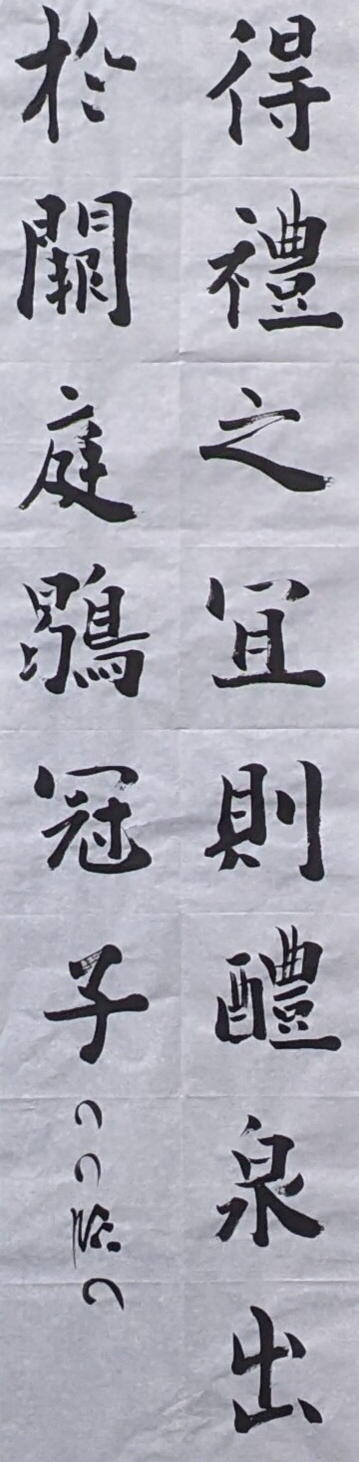 得禮之宜則醴泉出
於闕庭鶡冠子